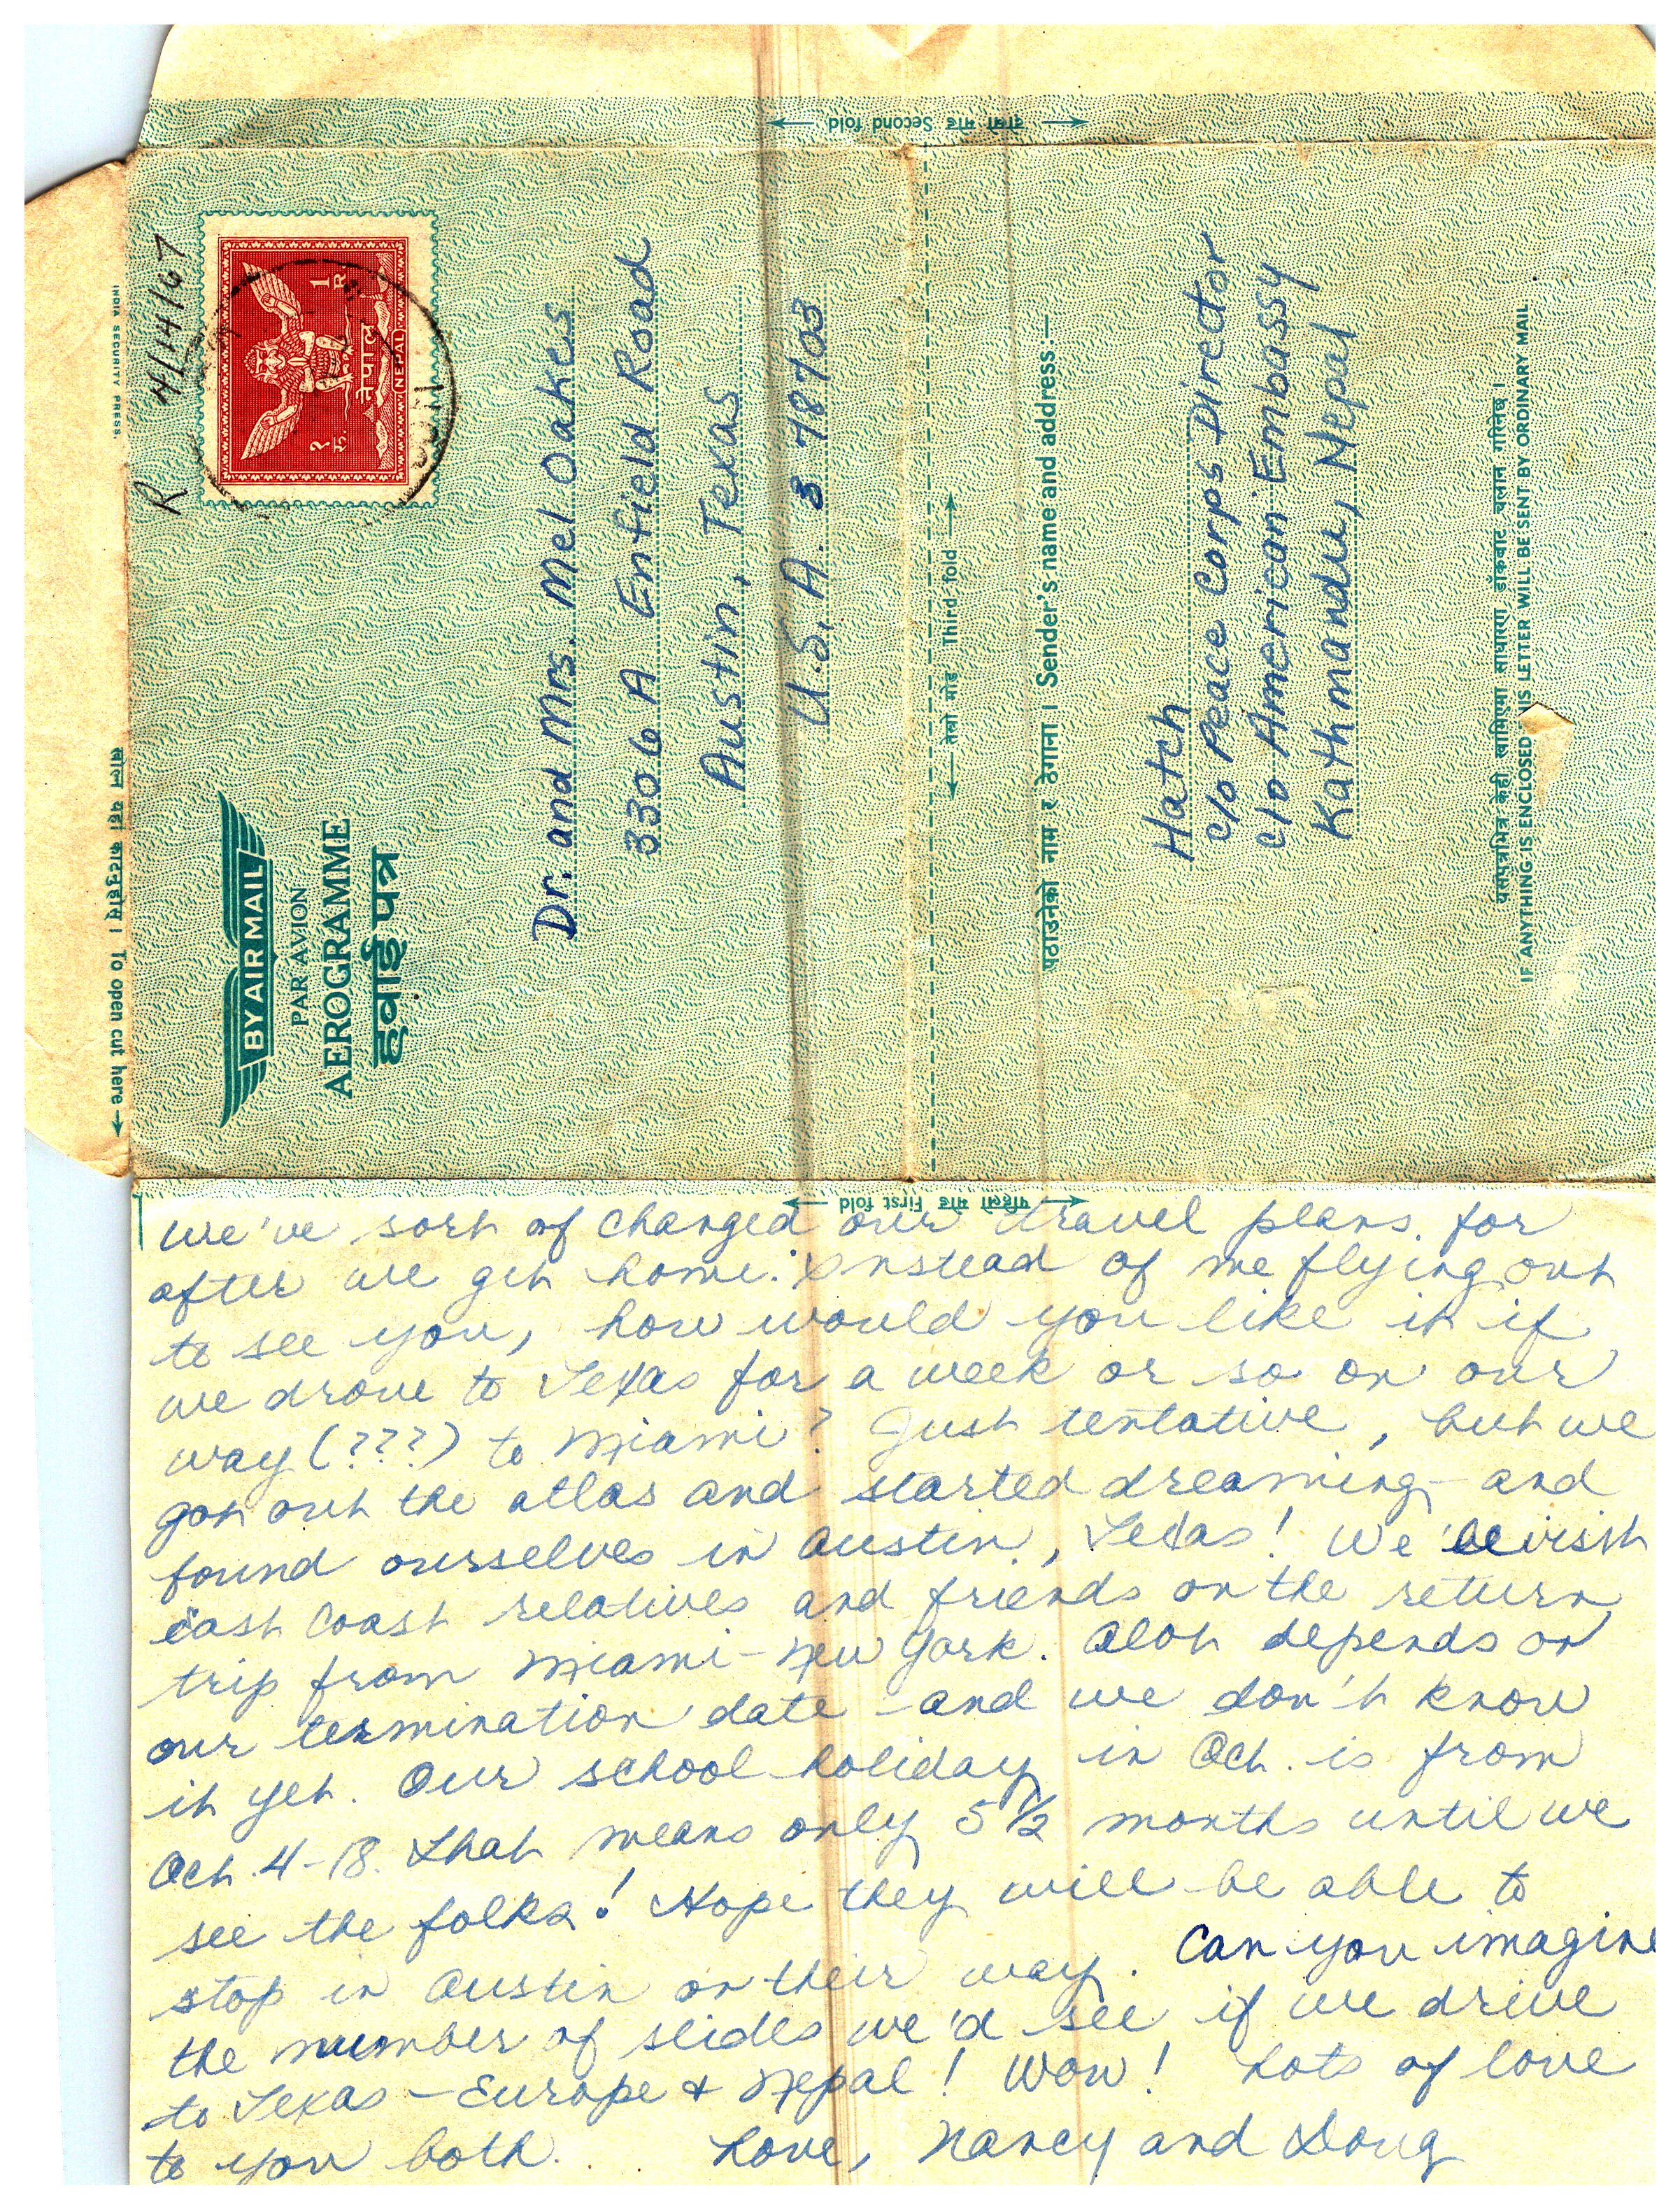 दोस्रो मोड Second fold
INDIA SECURITY PRESS.
R 4/14/67
१ रु.
1 R
नेपाल
(NEPAL)
खोल्न यहां काट्नुहोस् । To open cut here
BY AIR MAIL
PAR AVION
AEROGRAMME
हवाई पत्र
Dr. and Mrs. Mel Oakes
3306 A Enfield Road
Austin, Texas
U.S.A. 78703
तेस्रो मोड Third fold
पठाउनेको नाम र ठेगाना । Sender's name and address:—
Hatch
c/o Peace Corps Director
c/o American Embassy
Kathmandu, Nepal
यसपत्रभित्र केही खामिएमा साधारण डाँकबाट चलान गरिनेछ ।
IF ANYTHING IS ENCLOSED THIS LETTER WILL BE SENT BY ORDINARY MAIL
पहिलो मोड First fold
We've sort of changed our travel plans for
after we get home. Instead of me flying out
to see you, how would you like it if
we drove to Texas for a week or so on our
way (???) to Miami? Just tentative, but we
got out the atlas and started dreaming – and
found ourselves in Austin, Texas! We'll visit
east coast relatives and friends on the return
trip from Miami – New York. Alot depends on
our termination date – and we don't know
it yet. Our school holiday in Oct. is from
Oct. 4-18. That means only 5 1/2 months until we
see the folks! Hope they will be able to
stop in Austin on their way. Can you imagine
the number of slides we'd see if we drive
to Texas – Europe & Nepal! Wow! Lots of love
to you both. Love, Nancy and Doug